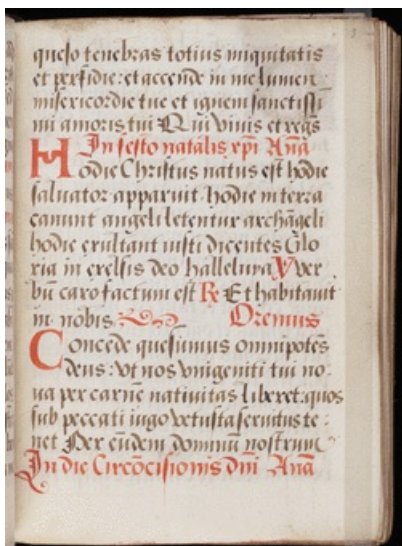 queso tenebras totius iniquitatis
et perfidie: et accende in me lumen
misericordie tue et ignem sanctissi
mi amoris tui Qui viuis et regs
In festo natalis xpi Anā
Hodie Christus natus est hodie
saluator apparuit hodie in terra
canunt angeli letentur archāgeli
hodie exultant iusti dicentes Glo
ria in excelsis deo halleluya ℣ ver
bū caro factum est ℟ Et habitauit
in nobis Oremus
Concede quesumus omnipotēs
deus: vt nos vnigeniti tui no-
ua per carnē natiuitas liberet: quos
sub peccati iugo vetusta seruitus te-
net Per eūdem dominū nostrum
In die Circōcisionis dnī Anā